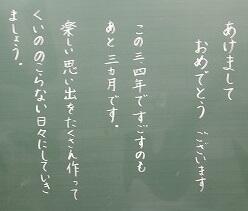 あけまして
おめでとう ございます
この三四年ですごすのも
あと三ヵ月です。
楽しい思い出をたくさん作って
くいののこらない日々にしていき
ましょう。